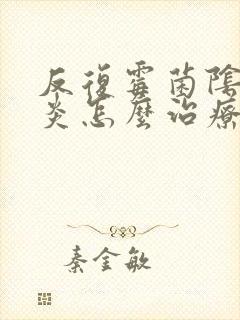 反復霉菌陰
炎怎麼治療
秦金敏